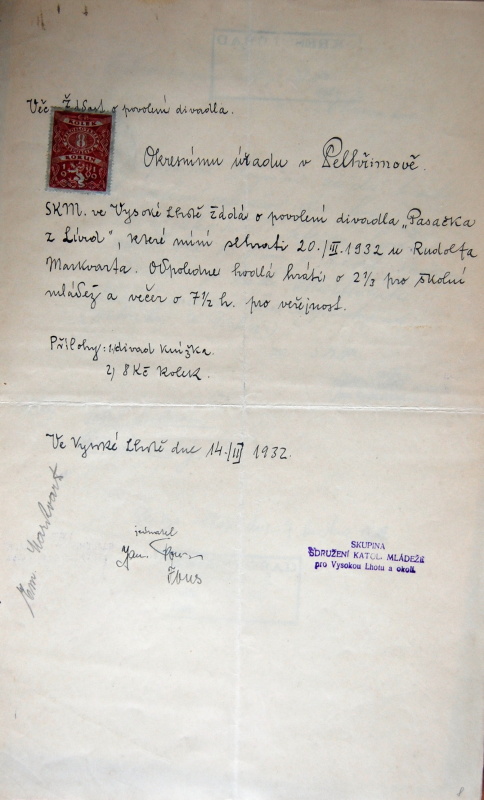 Věc: Žádost o povolení divadla.
KOLEK
8
KORUN
Okresnímu úřadu v Pelhřimově.
SKM. ve Vysoké Lhotě žádá o povolení divadla „Pasačka
z Lurd", které míní sehrati 20./III. 1932 u Rudolfa
Markvarta. Odpoledne hodlá hráti o 2½ pro školní
mládež a večer o 7½ h. pro veřejnost.
Přílohy: 1, divad knížka.
2, 8 Kč kolek.
Ve Vysoké Lhotě dne 14./III 1932.
jednatel
Jan
SKUPINA
SDRUŽENÍ KATOL. MLÁDEŽE
pro Vysokou Lhotu a okolí.
Markvart